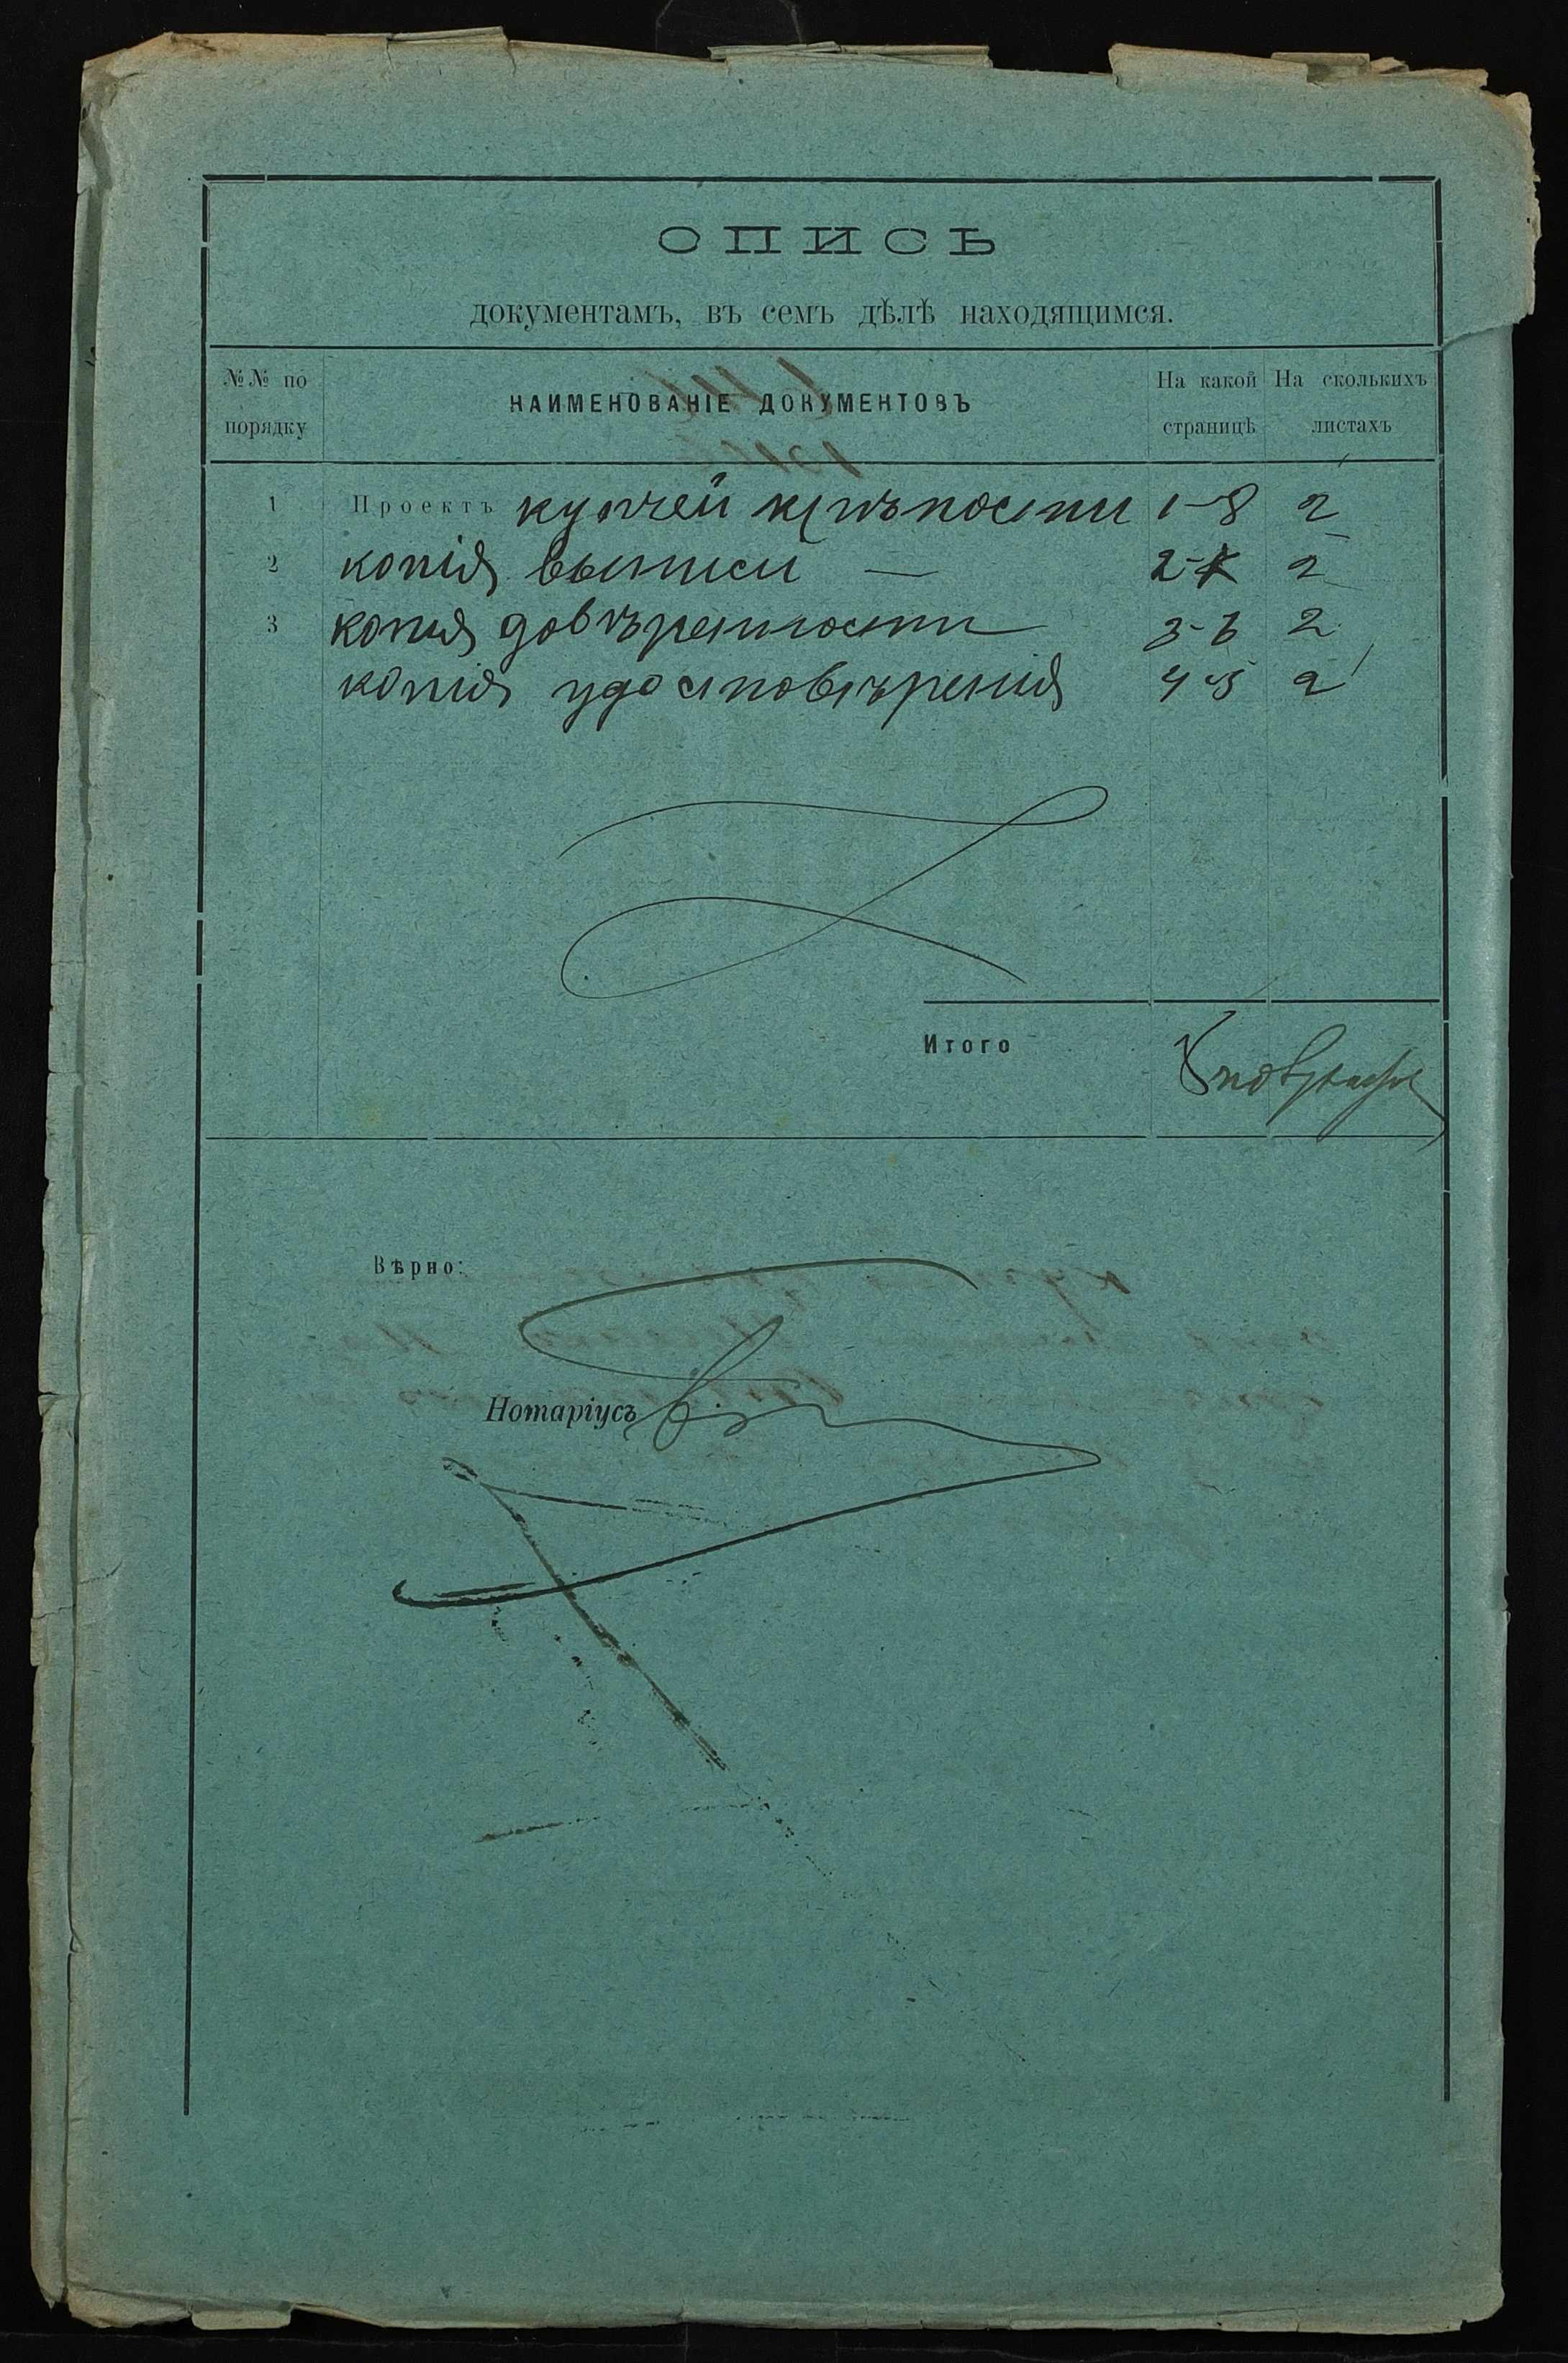 ОПИСЬ
документамъ, въ семъ дѣлѣ находящимся.
№№ по порядку
НАИМЕНОВАНІЕ ДОКУМЕНТОВЪ
На какой страницѣ
На сколькихъ листахъ
1 Проектъ купчей крѣпости 1-8 2
2 копія выписи — 2-7 2
3 копія довѣренности 3-6 2
копія удостовѣренія 4-5 2
Итого
Вѣрно:
Нотаріусъ